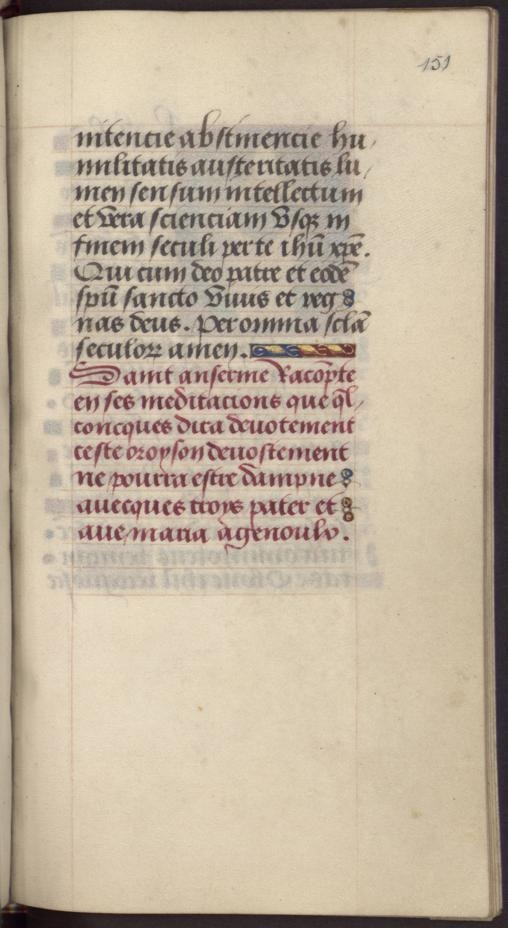 151
nitencie abstinencie hu,
militatis austeritatis lu,
men sensum intellectum
et vera scienciam vsq3 in
finem seculi per te ihū xp̄e.
Qui cum deo patre et eodē
spū sancto viuis et reg
nas deus. Per omnia sclā
seculoꝝ amen.
Saint anserme racōpte
en ses meditacions que q̄l,
concques dira deuotement
ceste oroyson deuostement
ne pourra estre dampne
auecques troys pater et
aue maria a genoulx.